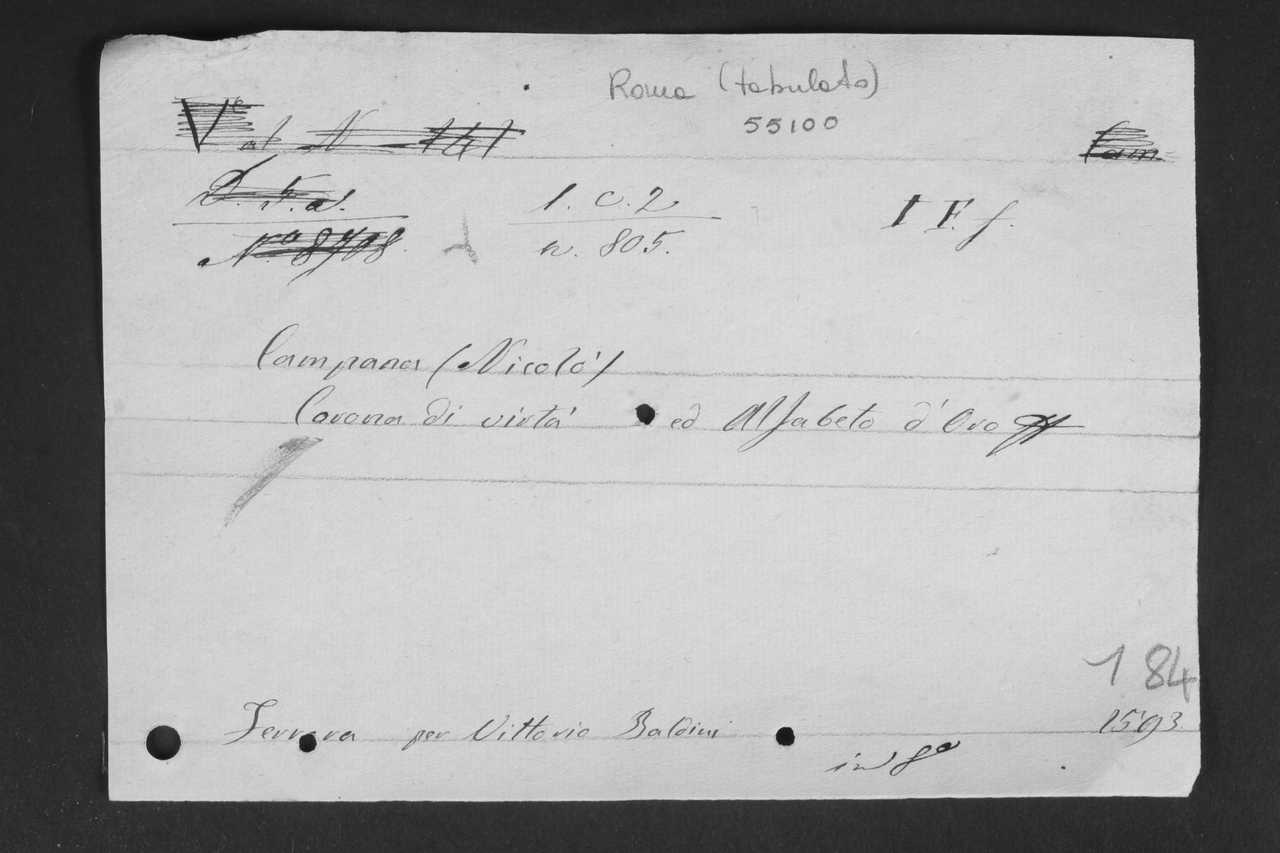 Roma (tabulato)
55100
Vat N 141
Cam
D. F. a.
N.o 8708
1. C. 2
n. 805.
I F. f.
Campana (Nicolò)
Corona di virtù ed Alfabeto d'Oro
184
Ferrara per Vittorio Baldini
1593
in 8o